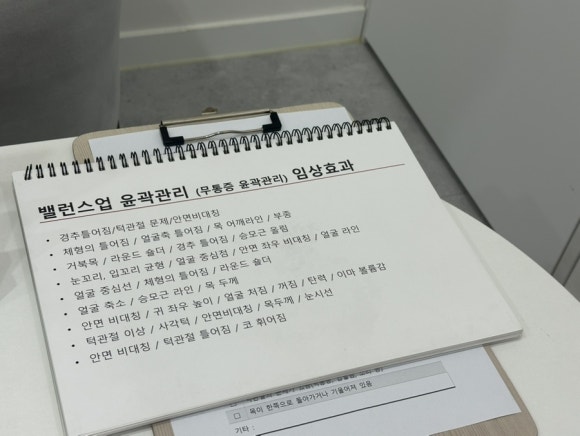 밸런스업 윤곽관리 (무통증 윤곽관리) 임상효과
• 경추틀어짐/턱관절 문제/안면비대칭
• 체형의 틀어짐 / 얼굴축 틀어짐 / 목 어깨라인 / 부종
• 거북목 / 라운드 숄더 / 경추 틀어짐 / 승모근 올림
• 눈꼬리, 입꼬리 균형 / 얼굴 중심점 / 안면 좌우 비대칭 / 얼굴 라인
• 얼굴 중심선 / 체형의 틀어짐 / 라운드 숄더
• 얼굴 축소 / 승모근 라인 / 목 두께
• 안면 비대칭 / 귀 좌우 높이 / 얼굴 처짐 / 꺼짐 / 탄력 / 이마 볼륨감
• 턱관절 이상 / 사각턱 / 안면비대칭 / 목두께 / 눈시선
• 안면 비대칭 / 턱관절 틀어짐 / 코 휘어짐
□ 목이 한쪽으로 돌아가거나 기울어져 있음
기타 :